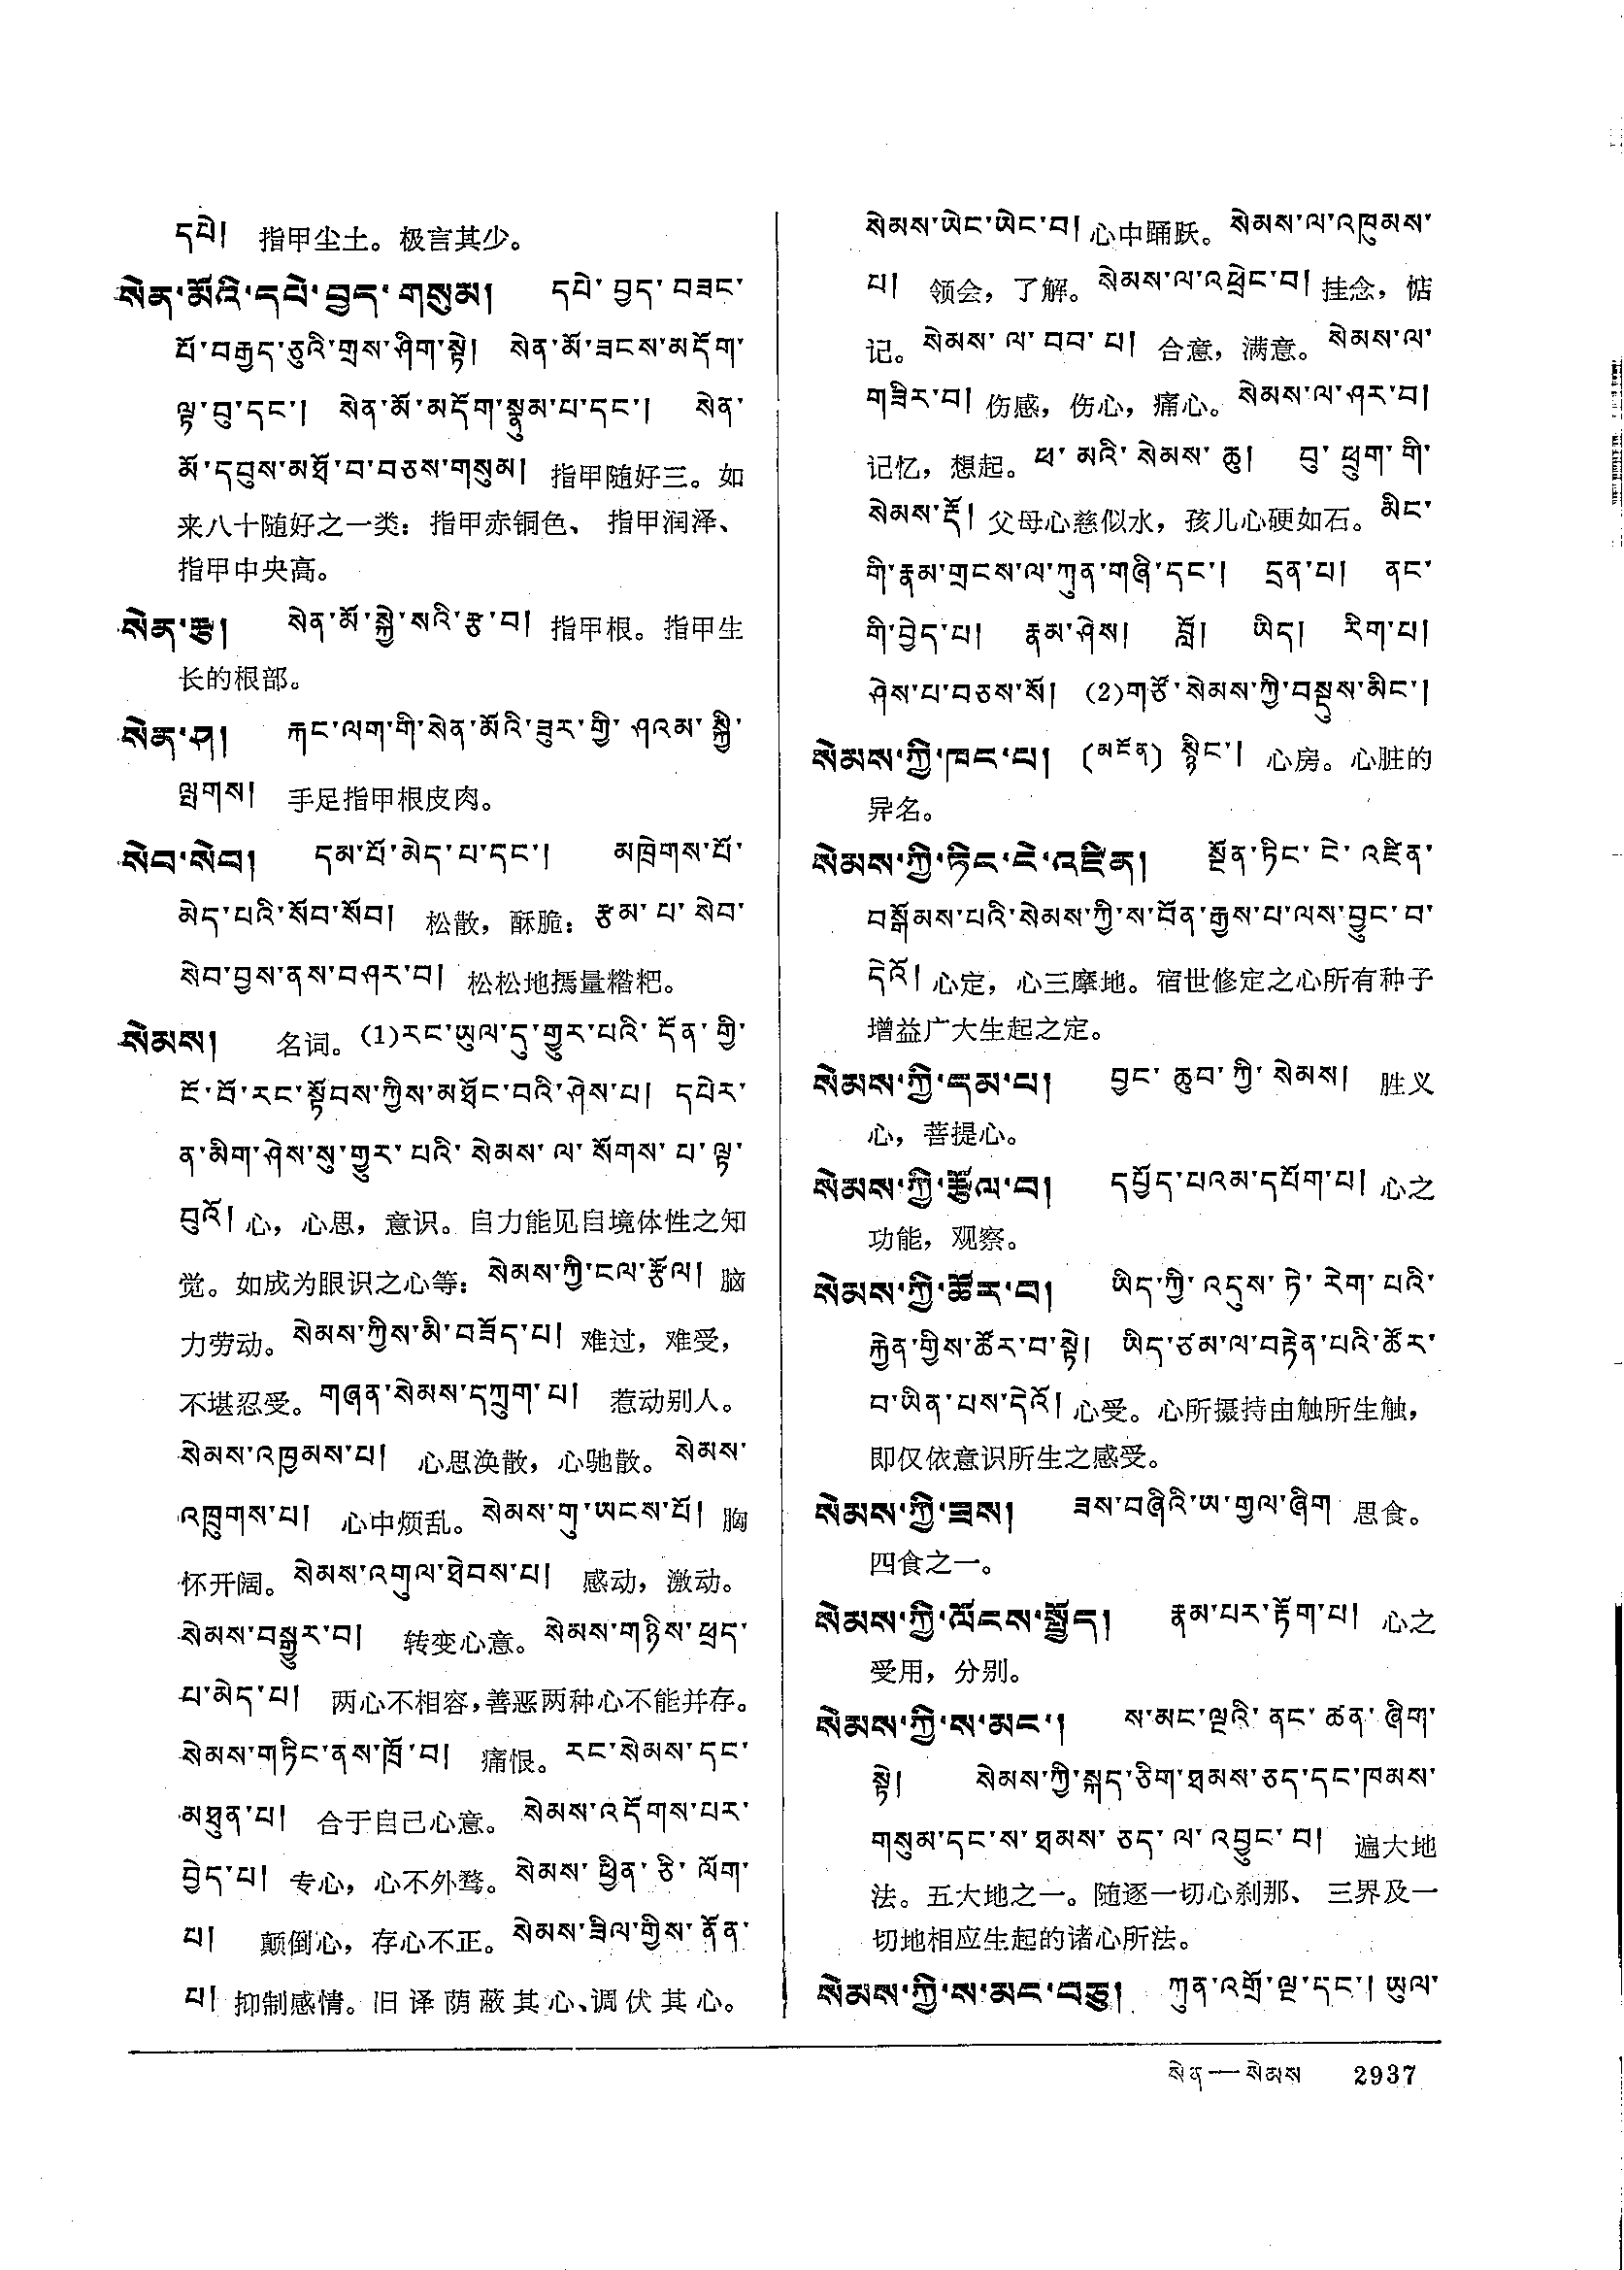 དཔེ། 指甲尘土。极言其少。
སེན་མོའི་དཔེ་བྱད་གསུམ། དཔེ་བྱད་བཟང་
པོ་བརྒྱད་ཅུའི་གྲས་ཤིག་སྟེ། སེན་མོ་ཟངས་མདོག་
ལྟ་བུ་དང་། སེན་མོ་མདོག་སྣུམ་པ་དང་། སེན་
མོ་དབུས་མཐོ་བ་བཅས་གསུམ། 指甲随好三。如
来八十随好之一类：指甲赤铜色、指甲润泽、
指甲中央高。
སེན་རྩ། སེན་མོ་སྐྱེ་སའི་རྩ་བ། 指甲根。指甲生
长的根部。
སེན་ཤ། རྐང་ལག་གི་སེན་མོའི་ཟུར་གྱི་ཤའམ་སྐྱི་
ལྤགས། 手足指甲根皮肉。
སེབ་སེབ། དམ་པོ་མེད་པ་དང་། མཁྲེགས་པོ་
མེད་པའི་སོབ་སོབ། 松散，酥脆：རྩམ་པ་སེབ་
སེབ་བྱས་ནས་བཤར་བ། 松松地㧟量糌粑。
སེམས། 名词。(1)རང་ཡུལ་དུ་གྱུར་པའི་དོན་གྱི་
ངོ་བོ་རང་སྟོབས་ཀྱིས་མཐོང་བའི་ཤེས་པ། དཔེར་
ན་མིག་ཤེས་སུ་གྱུར་པའི་སེམས་ལ་སོགས་པ་ལྟ་
བུའོ། 心，心思，意识。自力能见自境体性之知
觉。如成为眼识之心等：སེམས་ཀྱི་ངལ་རྩོལ། 脑
力劳动。སེམས་ཀྱིས་མི་བཟོད་པ། 难过，难受，
不堪忍受。གཞན་སེམས་དཀྲུག་པ། 惹动别人。
སེམས་འཁྱམས་པ། 心思涣散，心驰散。སེམས་
འཁྲུགས་པ། 心中烦乱。སེམས་གུ་ཡངས་པོ། 胸
怀开阔。སེམས་འགུལ་ཐེབས་པ། 感动，激动。
སེམས་བསྒྱུར་བ། 转变心意。སེམས་གཉིས་ཕྲད་
པ་མེད་པ། 两心不相容，善恶两种心不能并存。
སེམས་གཏིང་ནས་ཁྲོ་བ། 痛恨。རང་སེམས་དང་
མཐུན་པ། 合于自己心意。སེམས་འདོགས་པར་
བྱེད་པ། 专心，心不外骛。སེམས་ཕྱིན་ཅི་ལོག་
པ། 颠倒心，存心不正。སེམས་ཟིལ་གྱིས་ནོན་
པ། 抑制感情。旧译荫蔽其心、调伏其心。
སེམས་ཡེང་ཡེང་བ། 心中踊跃。སེམས་ལ་འཁུམས་
པ། 领会，了解。སེམས་ལ་འཕྲེང་བ། 挂念，惦
记。སེམས་ལ་བབ་པ། 合意，满意。སེམས་ལ་
གཟིར་བ། 伤感，伤心，痛心。སེམས་ལ་ཤར་བ།
记忆，想起。ཕ་མའི་སེམས་ཆུ། བུ་ཕྲུག་གི་
སེམས་རྡོ། 父母心慈似水，孩儿心硬如石。མིང་
གི་རྣམ་གྲངས་ལ་ཀུན་གཞི་དང་། དྲན་པ། ནང་
གི་བྱེད་པ། རྣམ་ཤེས། བློ། ཡིད། རིག་པ།
ཤེས་པ་བཅས་སོ། (2)གཙོ་སེམས་ཀྱི་བསྡུས་མིང་།
སེམས་ཀྱི་ཁང་པ། (མངོན) སྙིང་། 心房。心脏的
异名。
སེམས་ཀྱི་ཏིང་ངེ་འཛིན། སྔོན་ཏིང་ངེ་འཛིན་
བསྒོམས་པའི་སེམས་ཀྱི་ས་བོན་རྒྱས་པ་ལས་བྱུང་བ་
དེའོ། 心定，心三摩地。宿世修定之心所有种子
增益广大生起之定。
སེམས་ཀྱི་དམ་པ། བྱང་ཆུབ་ཀྱི་སེམས། 胜义
心，菩提心。
སེམས་ཀྱི་རྩོལ་བ། དཔྱོད་པའམ་དཔོག་པ། 心之
功能，观察。
སེམས་ཀྱི་ཚོར་བ། ཡིད་ཀྱི་འདུས་ཏེ་རེག་པའི་
རྐྱེན་གྱིས་ཚོར་བ་སྟེ། ཡིད་ཙམ་ལ་བརྟེན་པའི་ཚོར་
བ་ཡིན་པས་དེའོ། 心受。心所摄持由触所生触，
即仅依意识所生之感受。
སེམས་ཀྱི་ཟས། ཟས་བཞིའི་ཨ་གྱལ་ཞིག 思食。
四食之一。
སེམས་ཀྱི་ལོངས་སྤྱོད། རྣམ་པར་རྟོག་པ། 心之
受用，分别。
སེམས་ཀྱི་ས་མང་། ས་མང་ལྔའི་ནང་ཚན་ཞིག་
སྟེ། སེམས་ཀྱི་སྐད་ཅིག་ཐམས་ཅད་དང་ཁམས་
གསུམ་དང་ས་ཐམས་ཅད་ལ་འབྱུང་བ། 遍大地
法。五大地之一。随逐一切心刹那、三界及一
切地相应生起的诸心所法。
སེམས་ཀྱི་ས་མང་བཅུ། ཀུན་འགྲོ་ལྔ་དང་། ཡུལ་
སེན—སེམས 2937